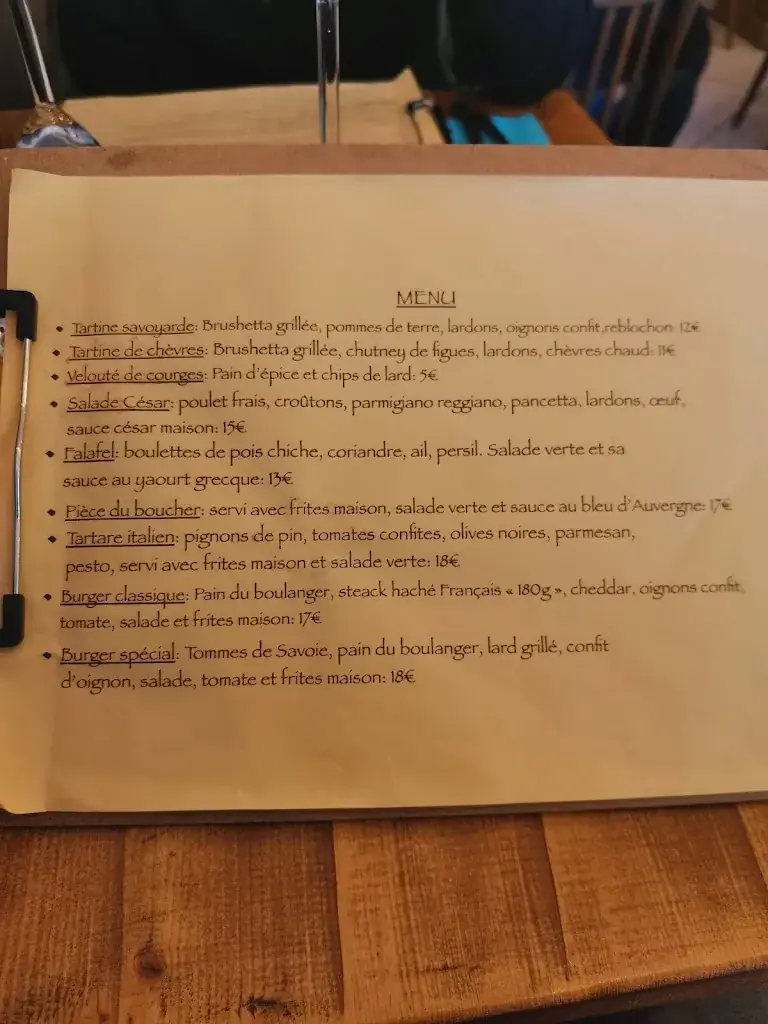 MENU
• Tartine savoyarde: Brushetta grillée, pommes de terre, lardons, oignons confit,reblochon: 12€
• Tartine de chèvres: Brushetta grillée, chutney de figues, lardons, chèvres chaud: 11€
• Velouté de courges: Pain d'épice et chips de lard: 5€
• Salade César: poulet frais, croûtons, parmigiano reggiano, pancetta, lardons, œuf,
sauce césar maison: 15€
• Falafel: boulettes de pois chiche, coriandre, ail, persil. Salade verte et sa
sauce au yaourt grecque: 13€
• Pièce du boucher: servi avec frites maison, salade verte et sauce au bleu d'Auvergne: 17€
• Tartare italien: pignons de pin, tomates confites, olives noires, parmesan,
pesto, servi avec frites maison et salade verte: 18€
• Burger classique: Pain du boulanger, steack haché Français « 180g », cheddar, oignons confit,
tomate, salade et frites maison: 17€
• Burger spécial: Tommes de Savoie, pain du boulanger, lard grillé, confit
d'oignon, salade, tomate et frites maison: 18€